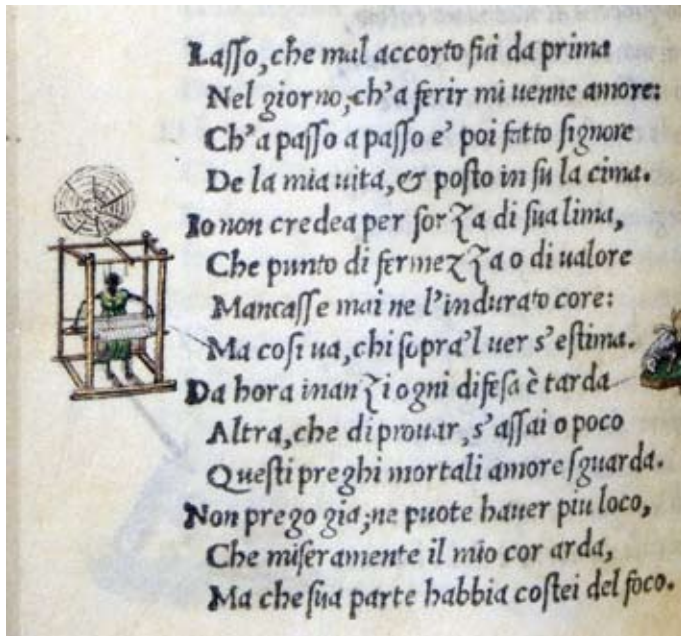 Lasso, che mal accorto fui da prima
Nel giorno, ch'a ferir mi uenne amore:
Ch'a passo a passo e' poi fatto signore
De la mia uita, & posto in su la cima.
Io non credea per forza di sua lima,
Che punto di fermezza o di ualore
Mancasse mai ne l'indurato core:
Ma cosi ua, chi sopra'l uer s'estima.
Da hora inanzi ogni difesa è tarda
Altra, che di prouar, s'assai o poco
Questi preghi mortali amore sguarda.
Non prego gia, ne puote hauer piu loco,
Che miseramente il mio cor arda,
Ma che sua parte habbia costei del foco.